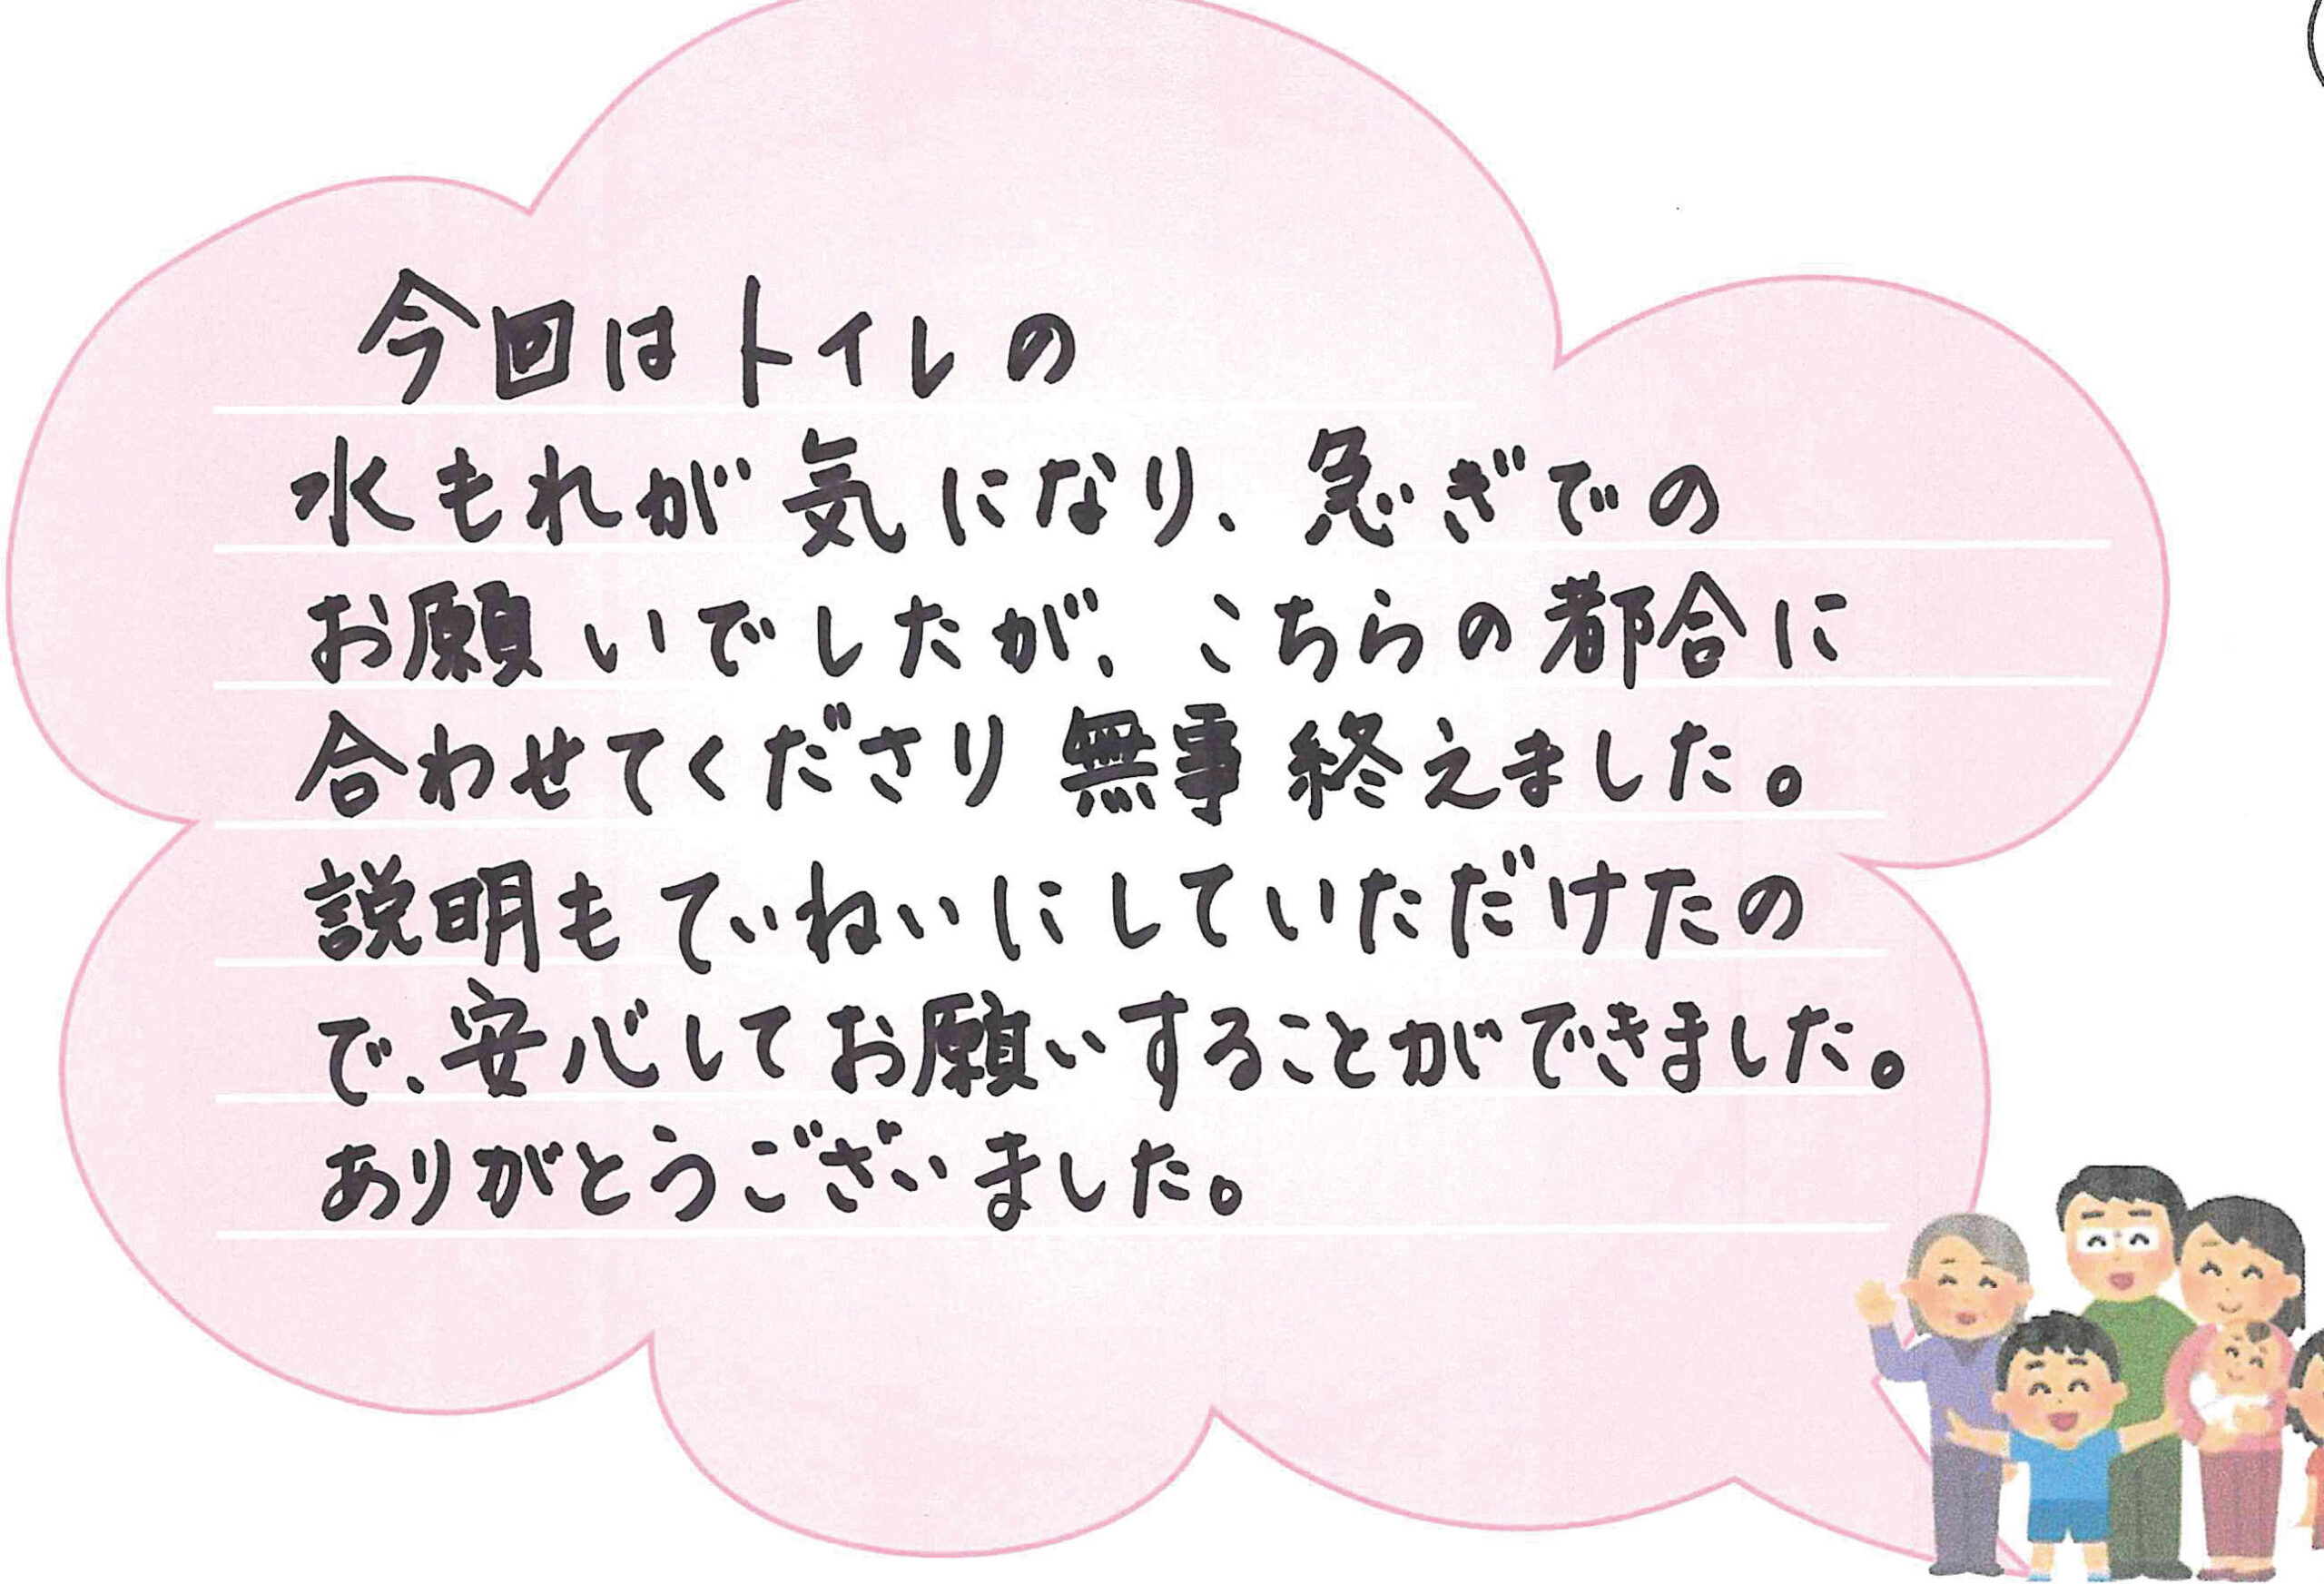 今回はトイレの
水もれが気になり、急ぎでの
お願いでしたが、こちらの都合に
合わせてくださり無事終えました。
説明もていねいにしていただけたの
で、安心してお願いすることができました。
ありがとうございました。